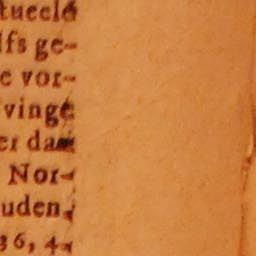 tueele
lfs ge-
e vor-
vinge
er dan
Nor-
uden,
36, 4.